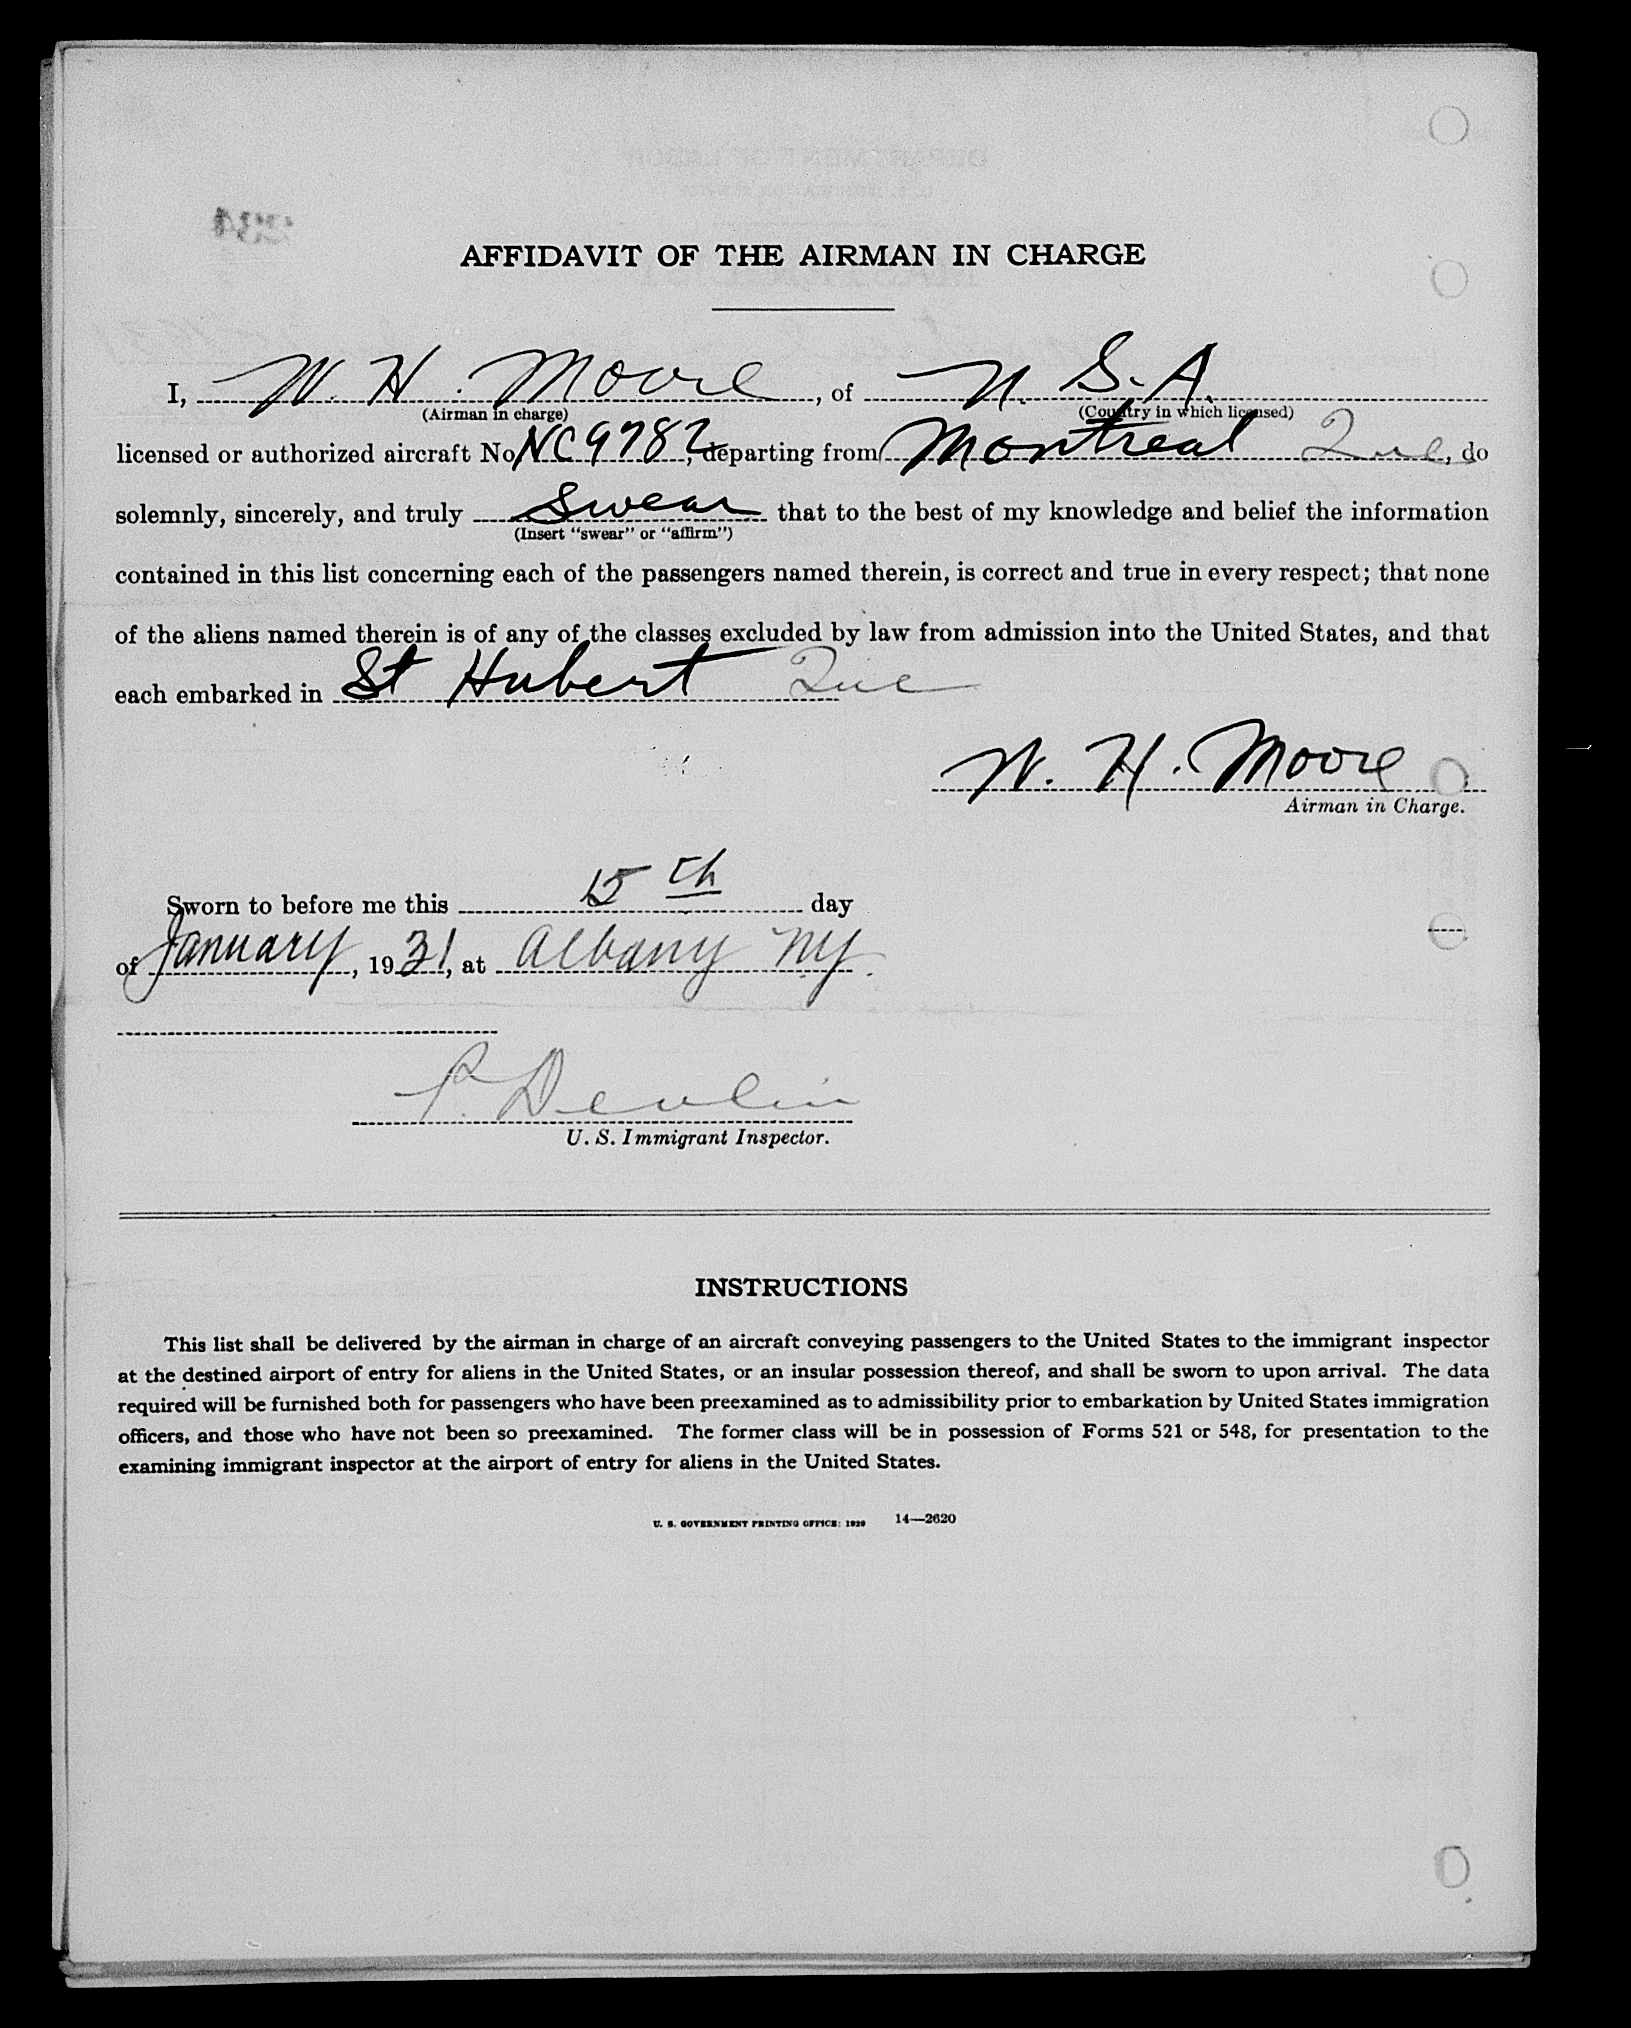 AFFIDAVIT OF THE AIRMAN IN CHARGE
I, W. H. Moore, of U. S. A.
(Airman in charge) (Country in which licensed)
licensed or authorized aircraft No. NC9782, departing from Montreal Que, do
solemnly, sincerely, and truly Swear that to the best of my knowledge and belief the information
(Insert "swear" or "affirm")
contained in this list concerning each of the passengers named therein, is correct and true in every respect; that none
of the aliens named therein is of any of the classes excluded by law from admission into the United States, and that
each embarked in St Hubert Que
W. H. Moore
Airman in Charge.
Sworn to before me this 15th day
of January, 1931, at Albany NY.
P. Devlin
U. S. Immigrant Inspector.
INSTRUCTIONS
This list shall be delivered by the airman in charge of an aircraft conveying passengers to the United States to the immigrant inspector
at the destined airport of entry for aliens in the United States, or an insular possession thereof, and shall be sworn to upon arrival. The data
required will be furnished both for passengers who have been preexamined as to admissibility prior to embarkation by United States immigration
officers, and those who have not been so preexamined. The former class will be in possession of Forms 521 or 548, for presentation to the
examining immigrant inspector at the airport of entry for aliens in the United States.
U. S. GOVERNMENT PRINTING OFFICE: 1929 14—2620